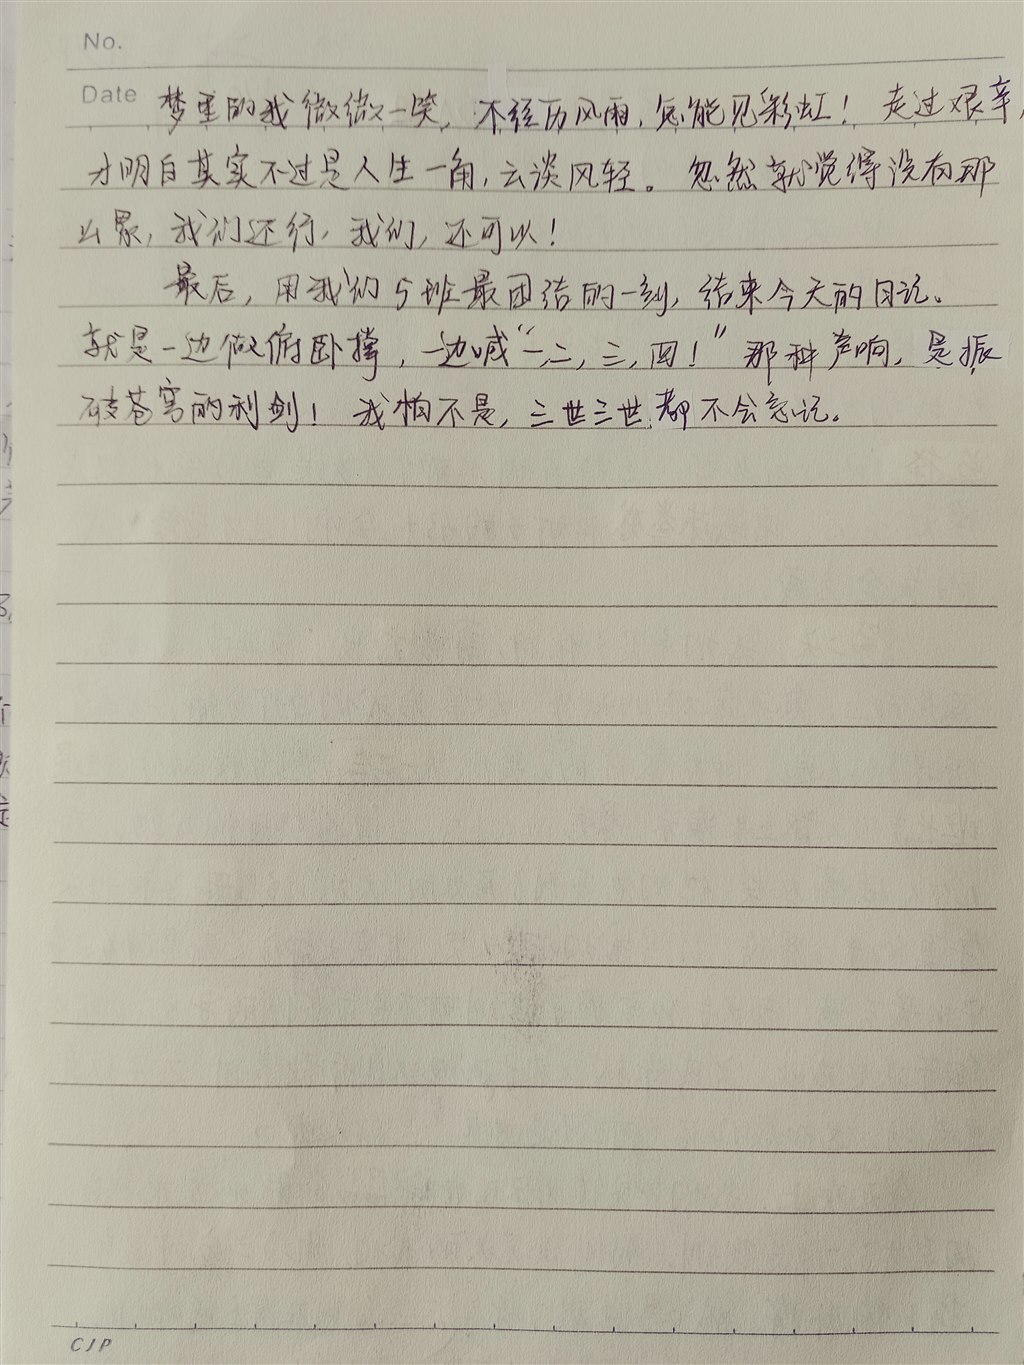 No.
Date 梦里的我微微一笑，不经历风雨，怎能见彩虹！走过艰辛，
才明白其实不过是人生一角，云淡风轻。忽然就觉得没有那
么累，我们还行，我们，还可以！
最后，用我们5班最团结的一刻，结束今天的日记。
就是一边做俯卧撑，一边喊“一,二，三，四！”那种声响，是振
破苍穹的利剑！我怕不是，三世三世都不会忘记。
CJP